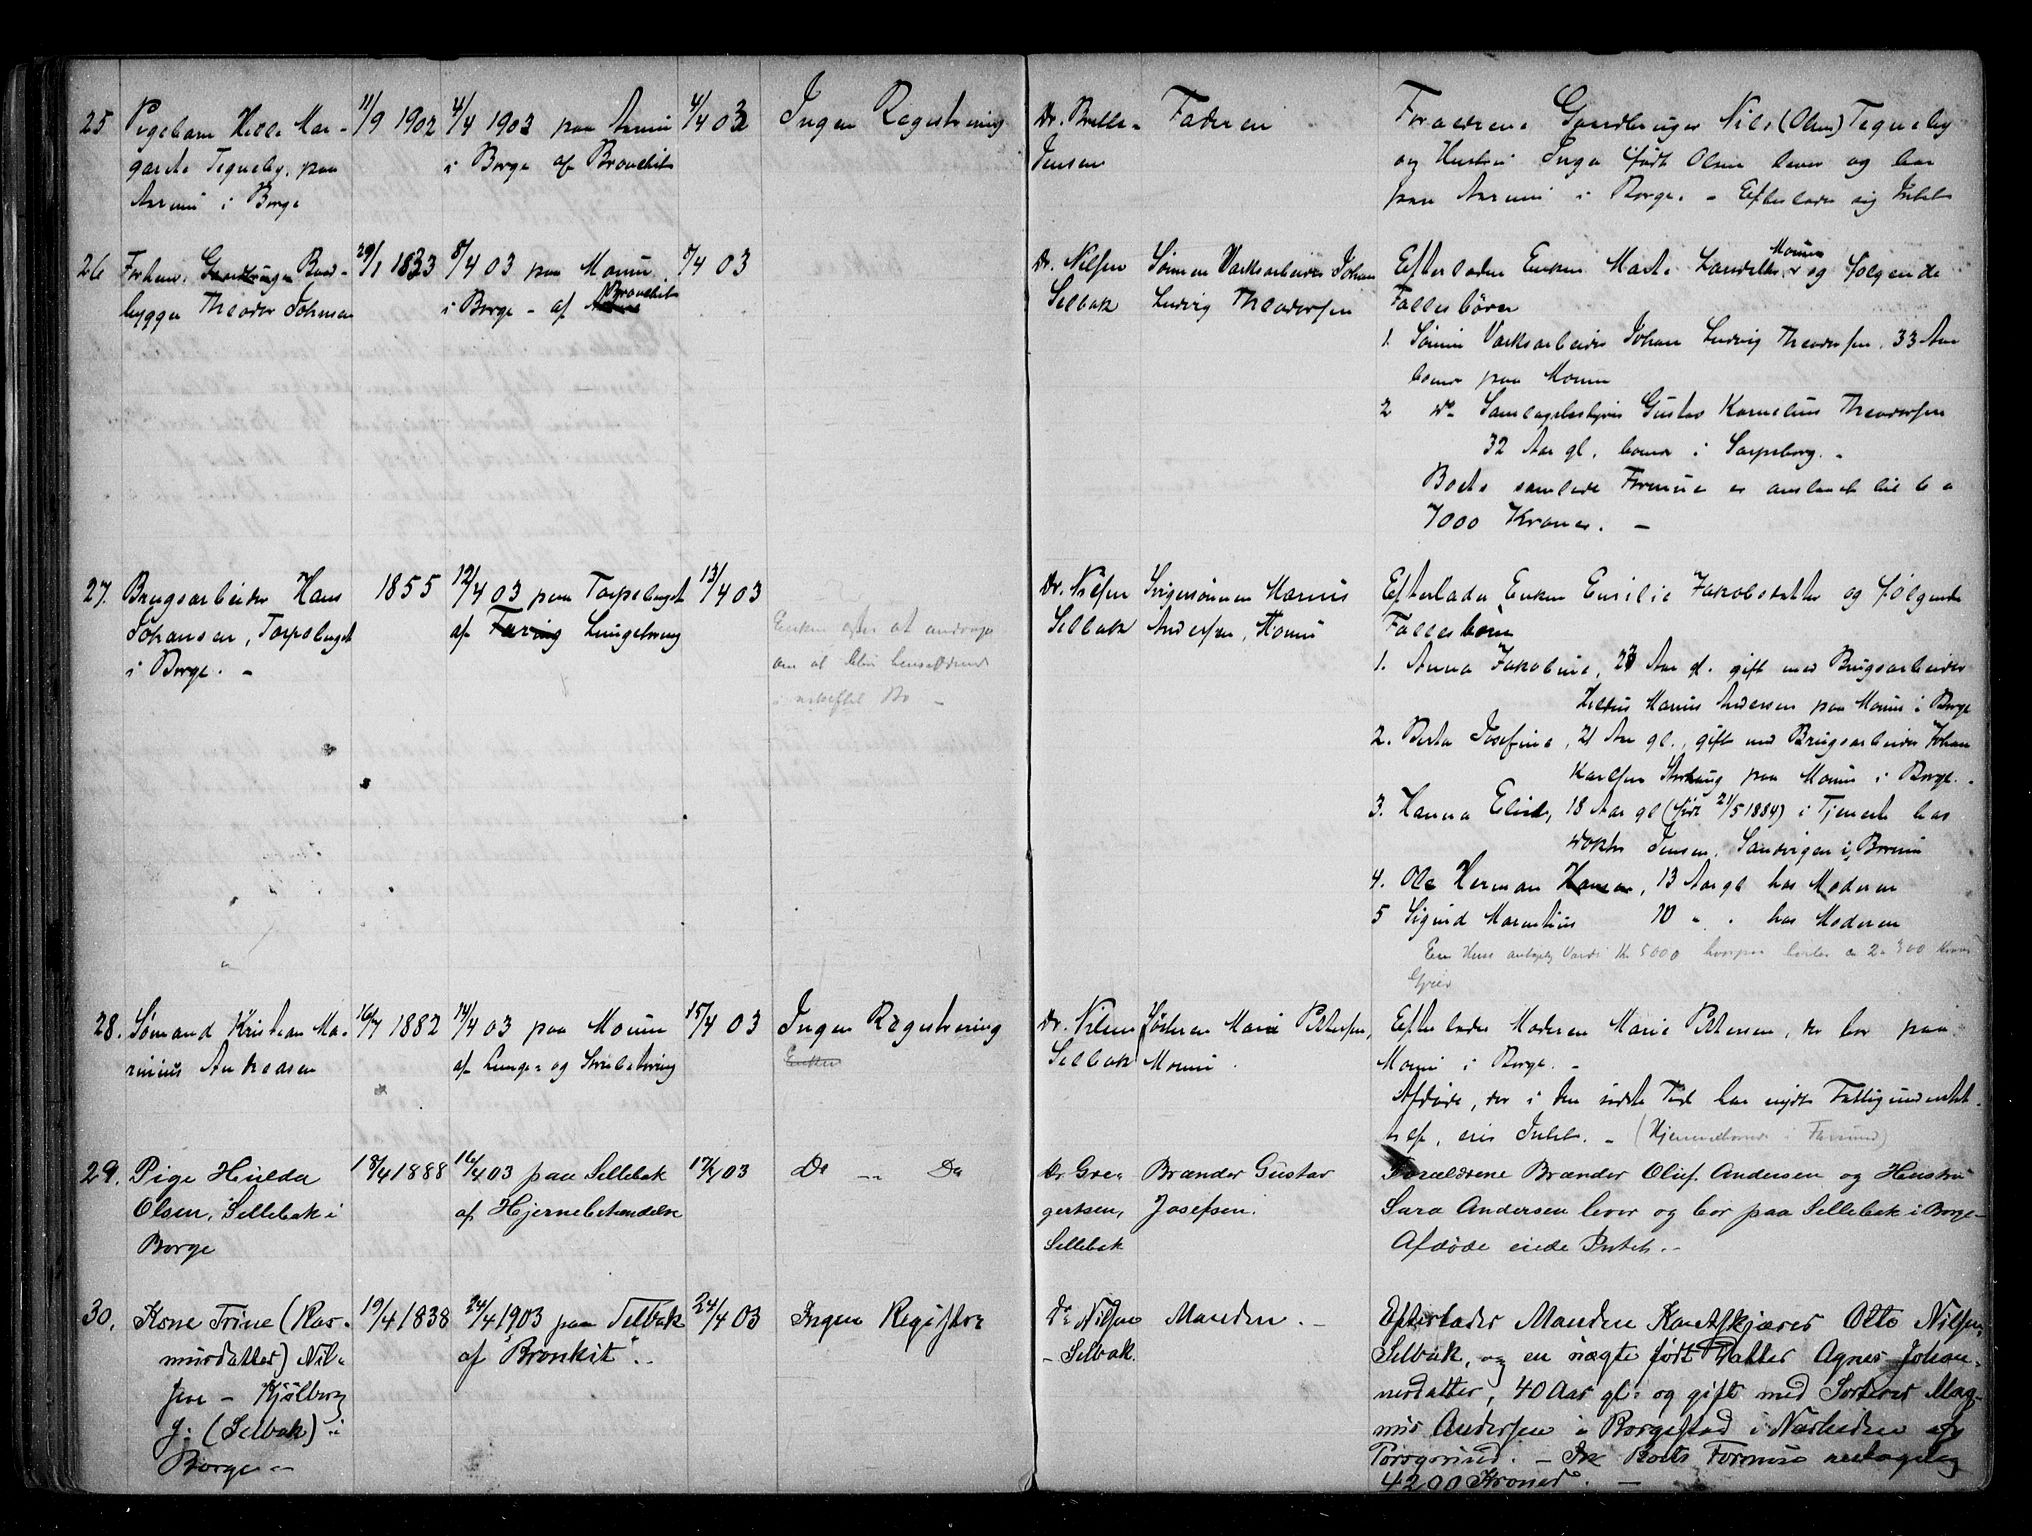 25 Pigebarn Helle Mar-
garete Tegneby, paa
i Borge
11/9 1902
4/4 1903 paa
i Borge af Bronchit
4/4 03
Ingen Registrering
Dr. Brelle-
Jensen
Faderen
Forældrene Gaardbruger Nils (Olsen) Tegneby
og Hustru Inga født Olsen lever og bor
paa i Borge. - Efterlader sig Intet
26 Forhenv. Baad-
bygger Theodor Johnsen
29/1 1833
8/4 03 paa Moum
i Borge - af Bronchit
8/4 03
Dr. Nilsen
Selbak
Sønnen Værksarbeider Johan
Ludvig Theodorsen
Efterlader Enken Marte Moum og følgende
Fællesbørn
1. Sønnen Værksarbeider Johan Ludvig Theodorsen, 33 Aar
boende paa Moum
2 do Gustav Kornelius Theodorsen
32 Aar gl, boende i Sarpsborg. -
Boets samlede Formue er anslaaet til ca
7000 Kroner. -
27. Brugsarbeider Hans
Johansen, Torpeberget
i Borge. -
1855
12/4 03 paa Torpeberget
af Tæring Lungetæring
13/4 03
Enken agter at andrage
om at blive hensiddende
i uskiftet Bo -
Dr. Nilsen
Selbak
Svigersønnen Marius
Andersen, Moum
Efterlader Enken Emilie Jakobsdatter og følgende
Fællesbørn
1. Anna Jakobine, 23 Aar gl. gift med Brugsarbeider
Marius Andersen paa Moum i Borge
2. Berta Josefine, 21 Aar gl., gift med Brugsarbeider Johan
Karlsen paa Moum i Borge. -
3. Hanna Elise, 18 Aar gl (født 21/5 1884) i Tjeneste hos
Doktor Jensen, Sandvigen i
4. Ole Herman Hansen, 13 Aar gl hos Moderen
5 Sigurd 10 " . hos Moderen
Een Huus antagelig Værdi Kr 5000 hvorpaa hviler ca 2 a 300 Kroner
Gjæld
28. Sømand Kristian Ma-
rinius Andreasen
16/7 1882
14/4 03 paa Moum
af Lunge- og Strubetæring
15/4 03
Ingen Registrering
Enken
Dr. Nilsen
Selbak
Søsteren Marie Pettersen,
Moum
Efterlader Moderen Marie Pettersen, der bor paa
Moum i Borge. -
Afdøde, der i den sidste Tid har nydt Fattigunderstøt-
telse, eier Intet. - (Hjemmehørende i Farsund)
29. Pige Hulda
Olsen, Sellebak i
Borge
18/4 1888
16/4 03 paa Sellebak
af Hjernebetændelse
17/4 03
Do -- Do
Dr. Gre-
gertsen,
Sellebak
Brænder Gustav
Josefsen.
Forældrene Brænder Oluf Andersen og Hustru
Sara Andersen lever og bor paa Sellebak i Borge -
Afdøde eiede Intet. -
30. Kone Trine (Ras-
musdatter) Nil-
sen - Kjølberg
g: (Selbak) i
Borge -
19/4 1838
24/4 1903 paa Selbak
af "Bronkit". -
24/4 03
Ingen Registre
Dr Nilsen
- Selbak.
Manden. -
Efterlader Manden Otto Nilsen,
Selbak, og en uægte født Datter Agnes Johan-
nesdatter, 40 Aar gl: og gift med Sorterer Mag-
nus Andersen i Borgestad i Nærheden af
Porsgrund. - Boets Formue antagelig
4200 Kroner. -